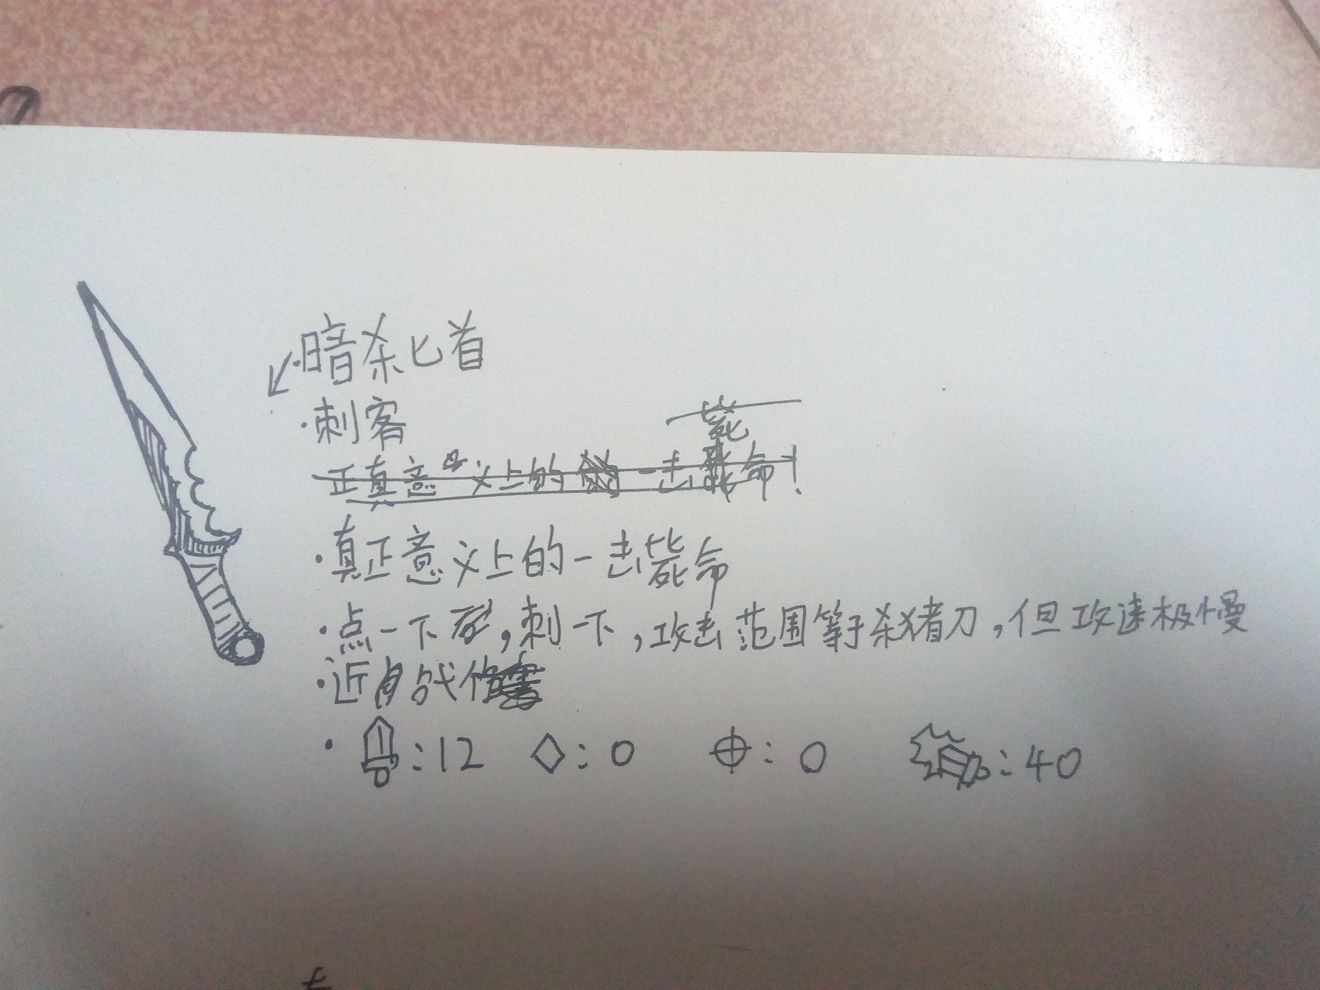 暗杀匕首
·刺客
正真意义上的一击毙命!
·真正意义上的一击毙命
·点一下,刺一下,攻击范围等于杀猪刀,但攻速极慢
·近身战
·:12 ◇:0 ⊕:0 :40